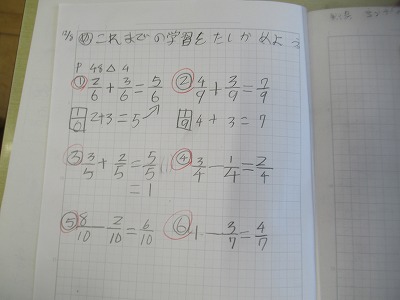 12/3 め これまでの学習をたしかめよう
P 48 △ 4
① 2/6 + 3/6 = 5/6 ② 4/9 + 3/9 = 7/9
1/6 2+3=5 1/9 4+3=7
③ 3/5 + 2/5 = 5/5 ④ 3/4 - 1/4 = 2/4
= 1
⑤ 8/10 - 2/10 = 6/10 ⑥ 1 - 3/7 = 4/7